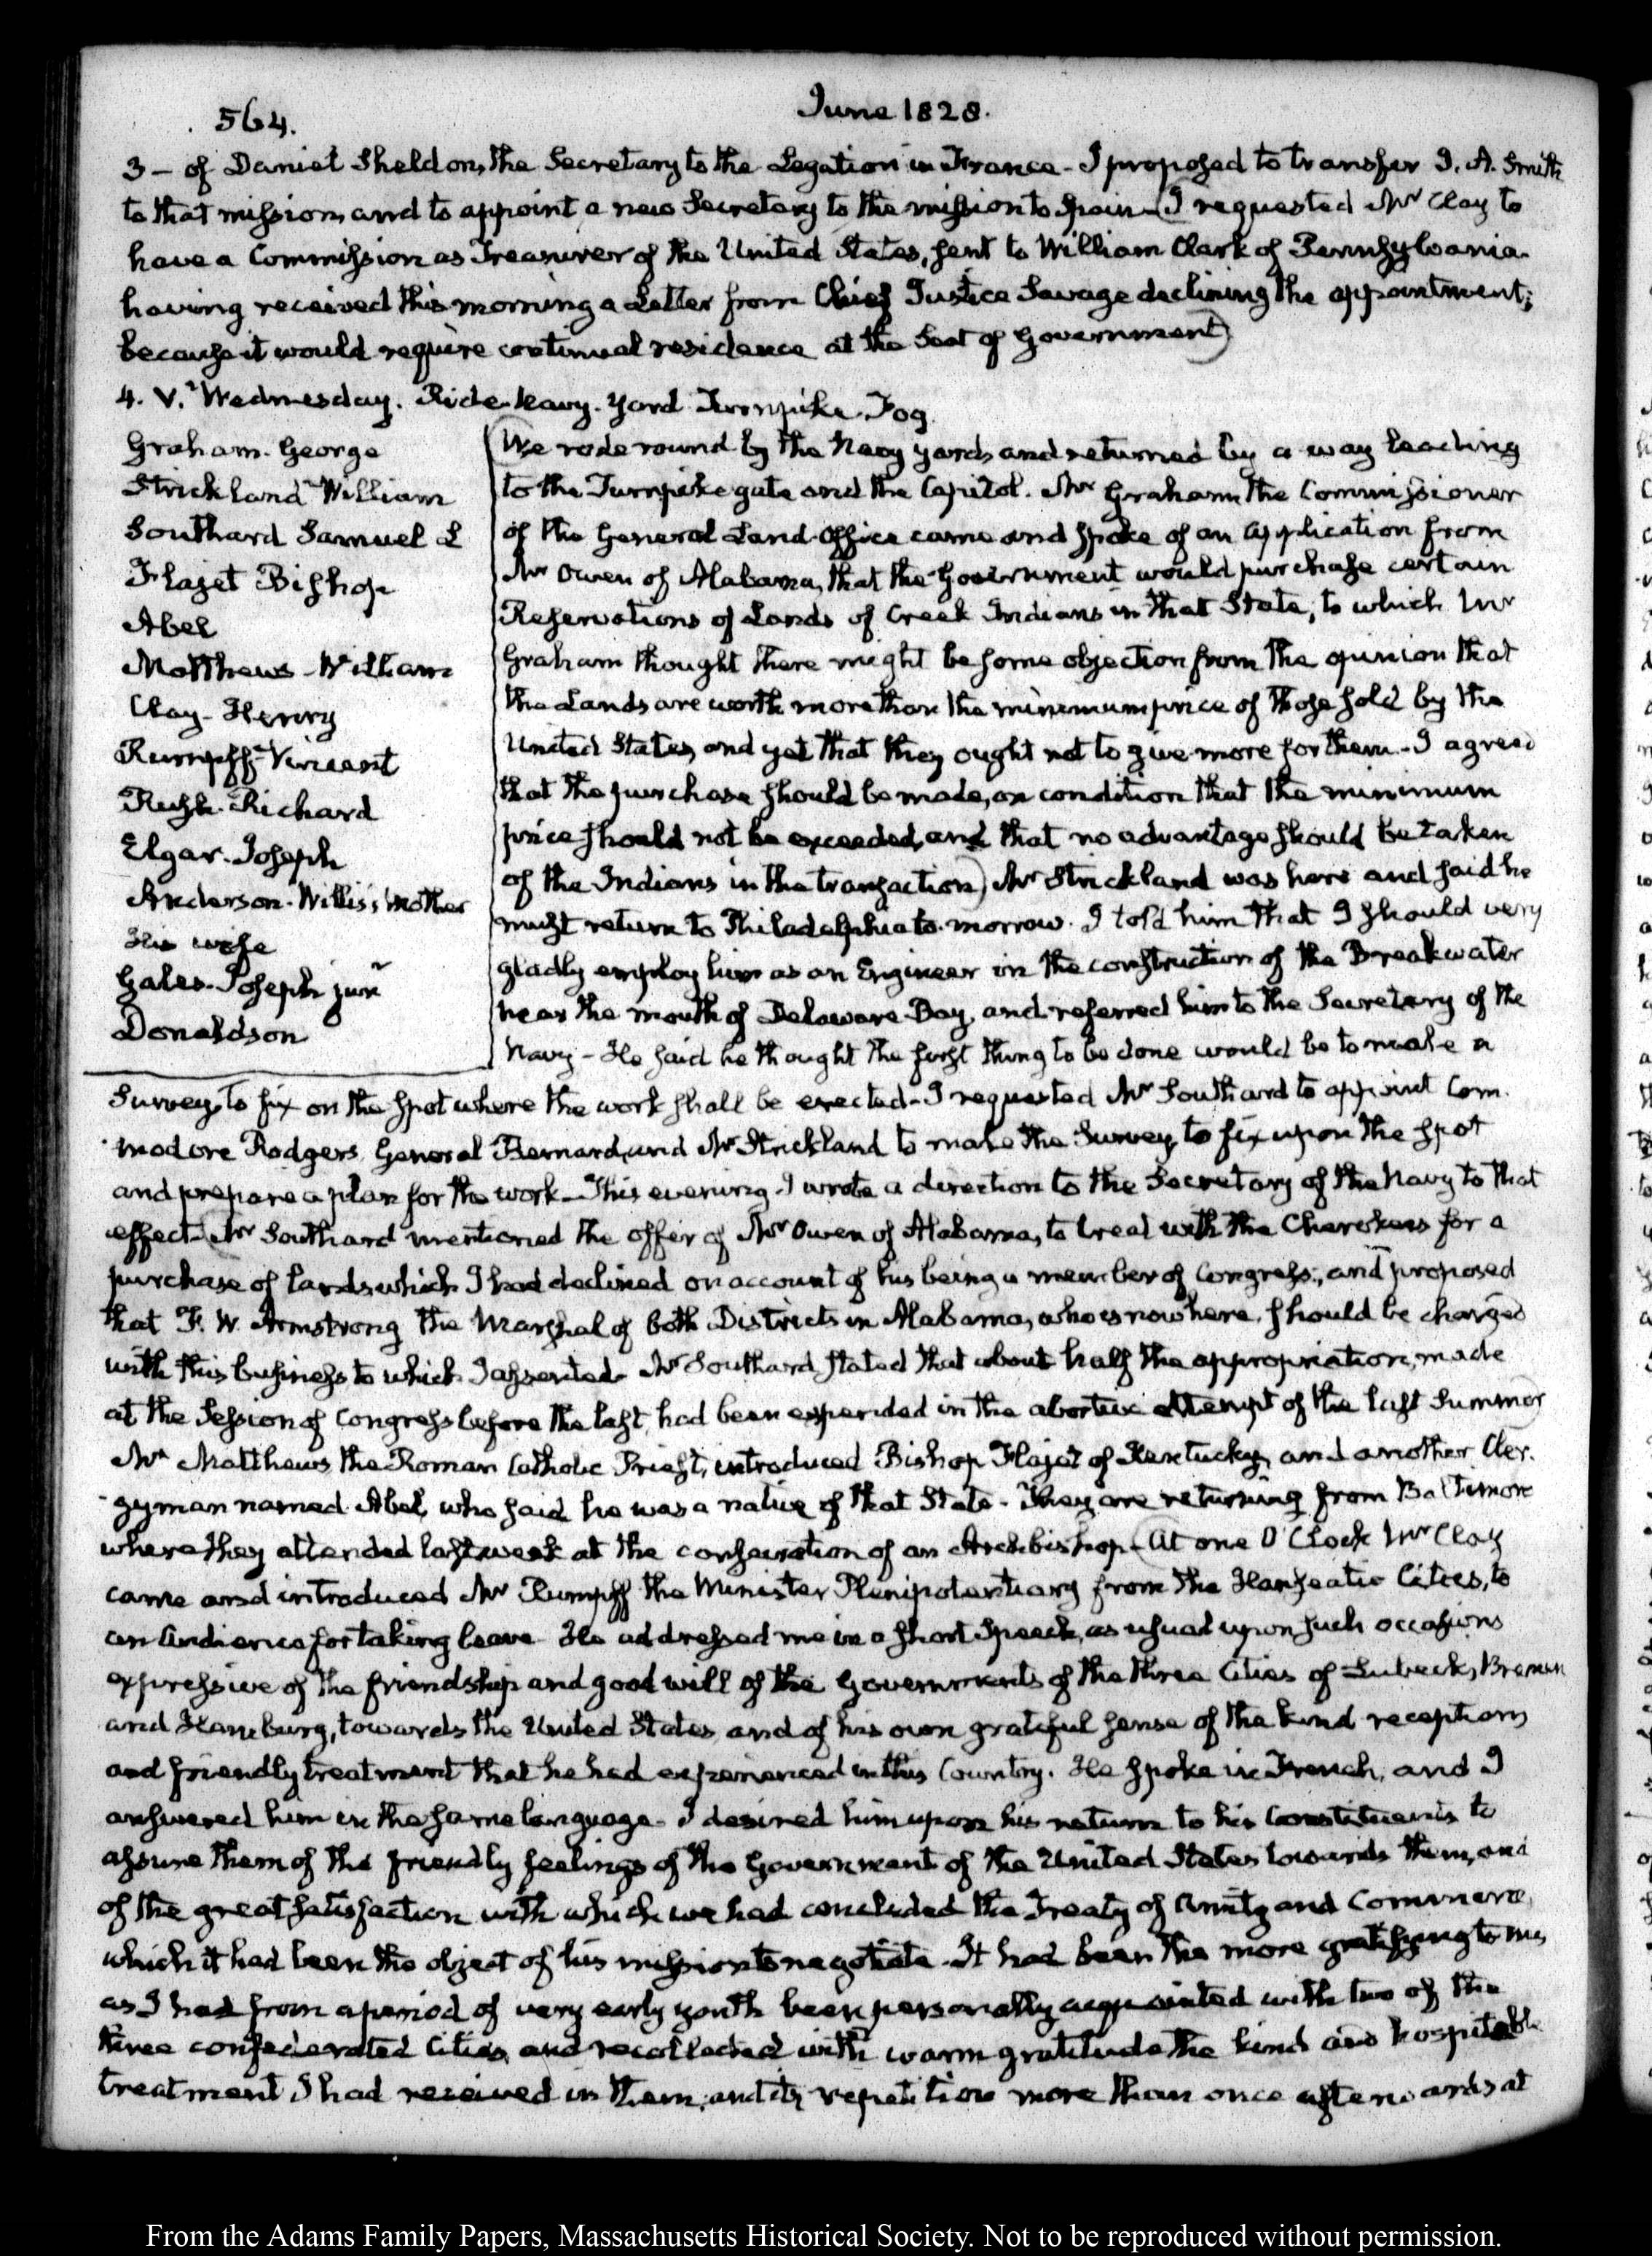 564.
June 1828.
3 — of Daniel Sheldon, the Secretary to the Legation in France - I proposed to transfer J. A. Smith
to that mission, and to appoint a new Secretary to the mission to Spain - (I requested Mr Clay to
have a Commission as Treasurer of the United States, sent to William Clark of Pennsylvania.
having received this morning a Letter from Chief Justice Savage declining the appointment;
because it would require continual residence at the Seat of Government)
4. V. Wednesday. Ride. Navy-Yard Turnpike. Fog.
Graham. George
Strickland William
Southard Samuel L
Flaget Bishop
Abel
Matthews - William
Clay - Henry
Rumpff - Vincent
Rush. Richard
Elgar. Joseph
Anderson. Willis's Mother
His wife
Gales. Joseph junr
Donaldson
(We rode round by the Navy yard, and returned by a way leading
to the Turnpike gate and the Capitol. Mr Graham, the Commissioner
of the General Land-Office came and spoke of an application from
Mr Owen of Alabama, that the Government would purchase certain
Reservations of Lands of Creek Indians in that State, to which Mr
Graham thought there might be some objection from the opinion that
the Lands are worth more than the minimum price of those sold by the
United States, and yet that they ought not to give more for them - I agreed
that the purchase should be made, on condition that the minimum
price should not be exceeded, and that no advantage should be taken
of the Indians in the transaction) Mr Strickland was here and said he
must return to Philadelphia to-morrow. I told him that I should very
gladly employ him as an Engineer in the construction of the Breakwater
near the mouth of Delaware Bay, and referred him to the Secretary of the
Navy - He said he thought the first thing to be done would be to make a
Survey, to fix on the spot where the work shall be erected - I requested Mr Southard to appoint Com-
modore Rodgers, General Bernard, and Mr Strickland to make the Survey, to fix upon the spot
and prepare a plan for the work - This evening I wrote a direction to the Secretary of the Navy to that
effect - (Mr Southard mentioned the offer of Mr Owen of Alabama, to treat with the Cherokees for a
purchase of lands, which I had declined on account of his being a member of Congress, and proposed
that F. W. Armstrong the Marshal of both Districts in Alabama, who is now here, should be charged
with this business to which I assented - Mr Southard stated that about half the appropriation, made
at the Session of Congress before the last, had been expended in the abortive attempt of the last Summer)
Mr Matthews the Roman Catholic Priest, introduced Bishop Flaget of Kentucky, and another Cler-
gyman named Abel, who said he was a native of that State - They are returning from Baltimore
where they attended last week at the consecration of an Archbishop - (At one O'Clock Mr Clay
came and introduced Mr Rumpff the Minister Plenipotentiary from the Hanseatic Cities, to
an Audience for taking leave - He addressed me in a short Speech, as usual upon such occasions
expressive of the friendship and good will of the Governments of the three Cities of Lubeck, Bremen
and Hamburg, towards the United States, and of his own grateful sense of the kind reception,
and friendly treatment that he had experienced in this Country. He spoke in French, and I
answered him in the same language - I desired him upon his return to his Constituents to
assure them of the friendly feelings of the Government of the United States towards them, and
of the great satisfaction with which we had concluded the Treaty of Amity and Commerce,
which it had been the object of his mission to negotiate - It had been the more gratifying to me,
as I had from a period of very early youth been personally acquainted with two of the
three confederated Cities, and recollected with warm gratitude the kind and hospitable
treatment I had received in them, and its repetition more than once afterwards at
From the Adams Family Papers, Massachusetts Historical Society. Not to be reproduced without permission.